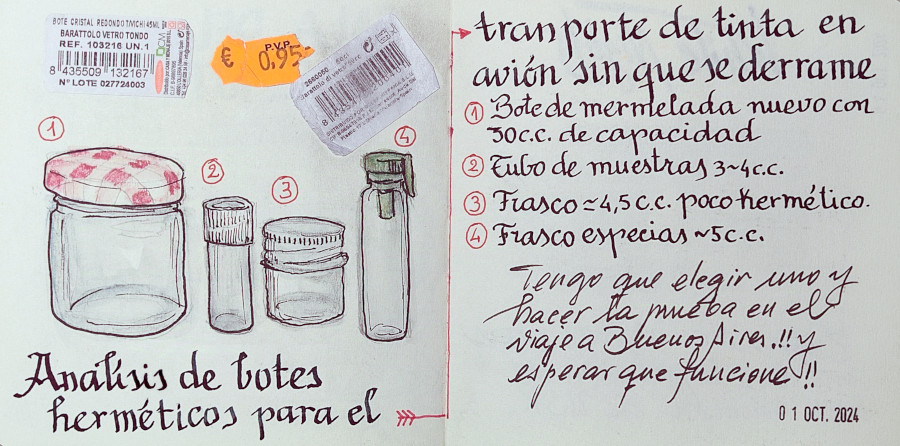 BOTE CRISTAL REDONDO T/VICHI 45ML
BARATTOLO VETRO TONDO
REF. 103216 UN.1
8 435509 132167
Nº LOTE 027724003
€
P.V.P.
0,95
2660050
1
2
3
4
Análisis de botes
herméticos para el
tranporte de tinta en
avión sin que se derrame
1 Bote de mermelada nuevo con
30c.c. de capacidad
2 Tubo de muestras 3~4c.c.
3 Frasco ≃4,5 c.c. poco hermético.
4 Frasco especias ~5c.c.
Tengo que elegir uno y
hacer la prueba en el
viaje a Buenos Aires.!! y
esperar que funcione!!
0 1 OCT. 2024